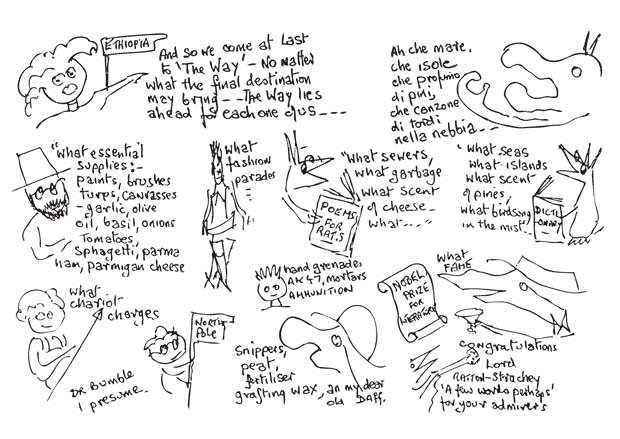 ETHIOPIA
And so we come at last
to 'The Way' - No matter
what the final destination
may bring -- The Way lies
ahead for each one of us ----
Ah che mare,
che isole
che profumo
di pini,
che canzone
di tordi
nella nebbia---
"What essential
supplies:-
paints, brushes
turps, canvasses
- garlic, olive
oil, basil, onions
Tomatoes,
Sphagetti, parma
ham, parmigan cheese
what
fashion
parades--
POEMS
FOR
RATS
"What sewers,
what garbage
what scent
of cheese_
what----"
'What seas
what islands
what scent
of pines,
what birdsong
in the mist--
DICTI-
ONARY
what
chariot
charges
DR Bumble
I presume.
NORTH
POLE
hand grenades
AK 47, mortars
AMMUNITION
Snippers,
peat,
fertiliser
grafting wax, my dear
old Daff.
NOBEL
PRIZE
FOR
LITERATURE
What
FAME
congratulations
Lord
-Strachey
'A few words perhaps'
for your admirers